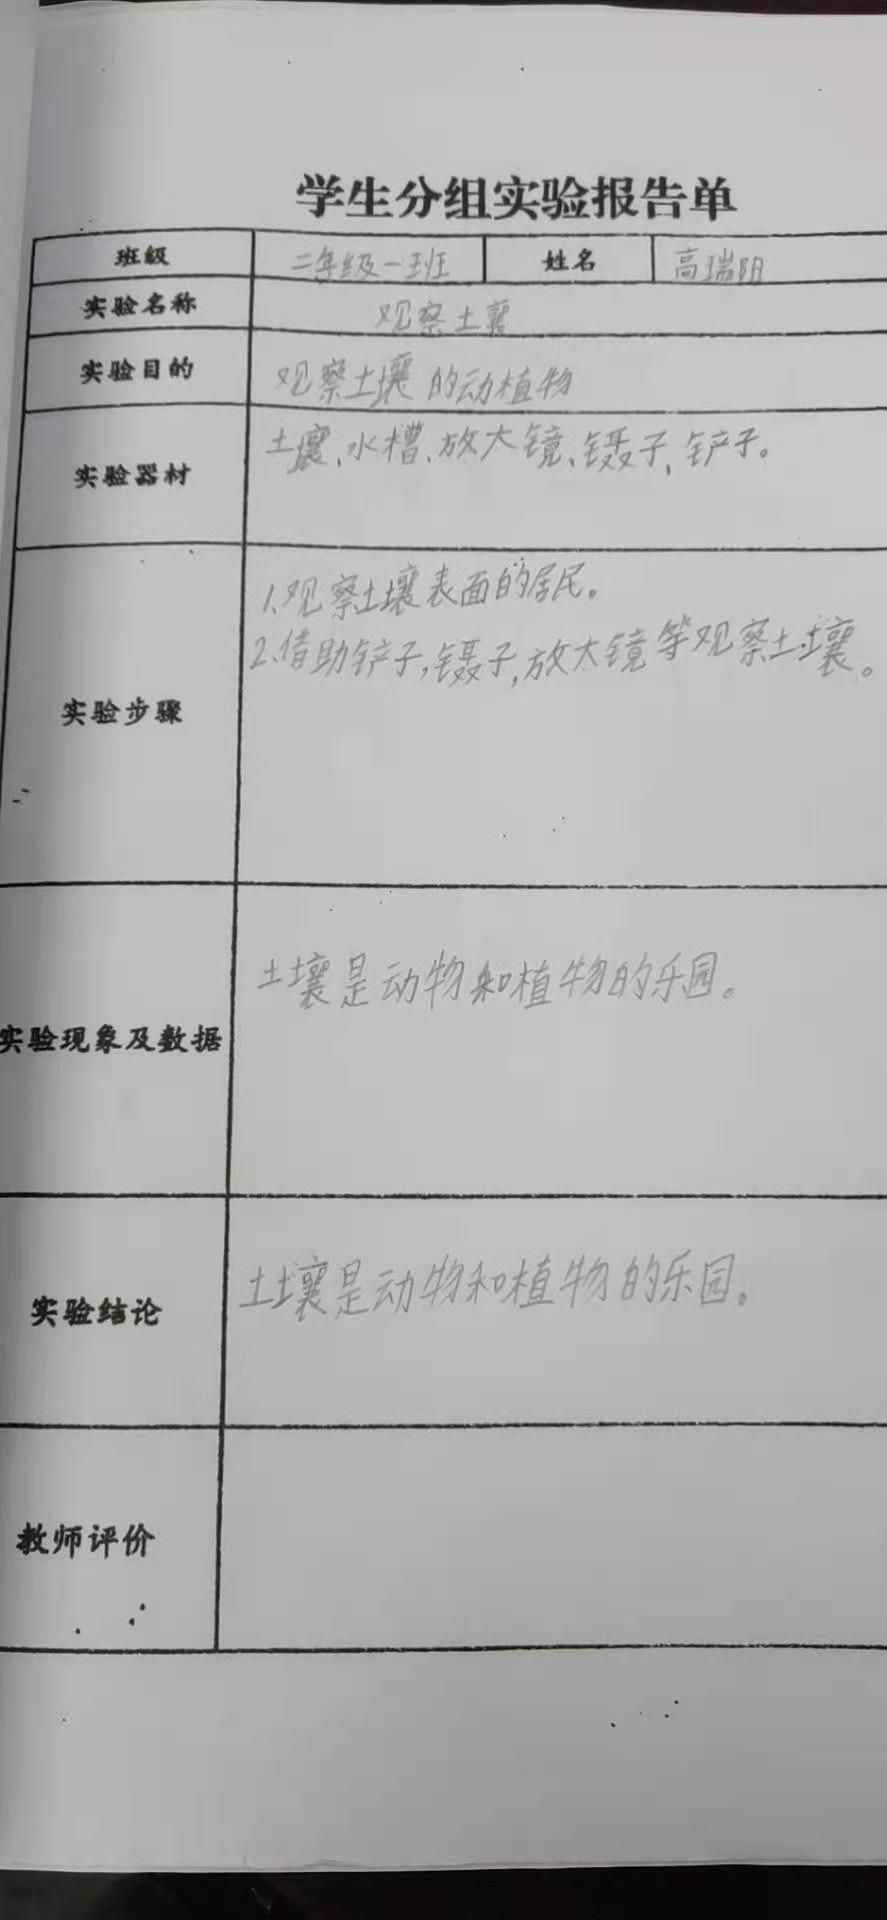 学生分组实验报告单
班级 二年级一班 姓名 高瑞阳
实验名称 观察土壤
实验目的 观察土壤的动植物
实验器材 土壤、水槽、放大镜、镊子、铲子。
1.观察土壤表面的居民。
2.借助铲子,镊子,放大镜等观察土壤。
实验步骤
土壤是动物和植物的乐园。
实验现象及数据
实验结论 土壤是动物和植物的乐园。
教师评价